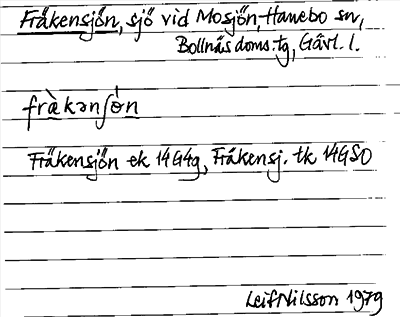 Fräkensjön, sjö vid Mosjön, Hanebo sn,
Bollnäs doms.tg, Gävl. l.
frὰkənʃón
Fräkensjön ek 14G4g, Fräkensj. tk 14GSO
Leif Nilsson 1979